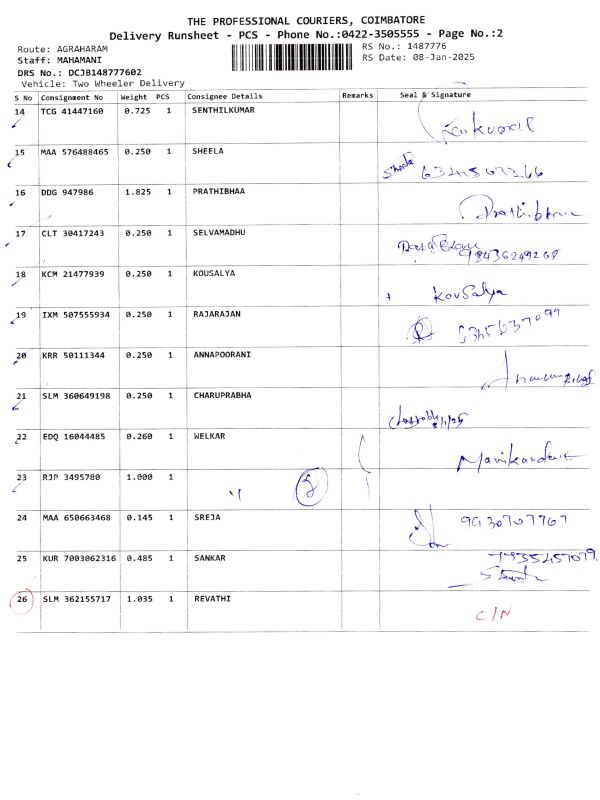 THE PROFESSIONAL COURIERS, COIMBATORE
Delivery Runsheet - PCS - Phone No.:0422-3505555 - Page No.:2
Route: AGRAHARAM
RS No.: 1487776
Staff: MAHAMANI
RS Date: 08-Jan-2025
DRS No.: DCJB148777602
Vehicle: Two Wheeler Delivery
S No Consignment No Weight PCS Consignee Details Remarks Seal & Signature
14 TCG 41447160 0.725 1 SENTHILKUMAR
15 MAA 576488465 0.250 1 SHEELA Sheela
16 DDG 947986 1.825 1 PRATHIBHAA Prathibhaa
17 CLT 30417243 0.250 1 SELVAMADHU
18 KCM 21477939 0.250 1 KOUSALYA Kousalya
19 IXM 507555934 0.250 1 RAJARAJAN
20 KRR 50111344 0.250 1 ANNAPOORANI
21 SLM 360649198 0.250 1 CHARUPRABHA
22 EDQ 16044485 0.260 1 WELKAR
23 RJP 3495780 1.000 1
24 MAA 650663468 0.145 1 SREJA
25 KUR 7003062316 0.485 1 SANKAR
26 SLM 362155717 1.035 1 REVATHI C/N